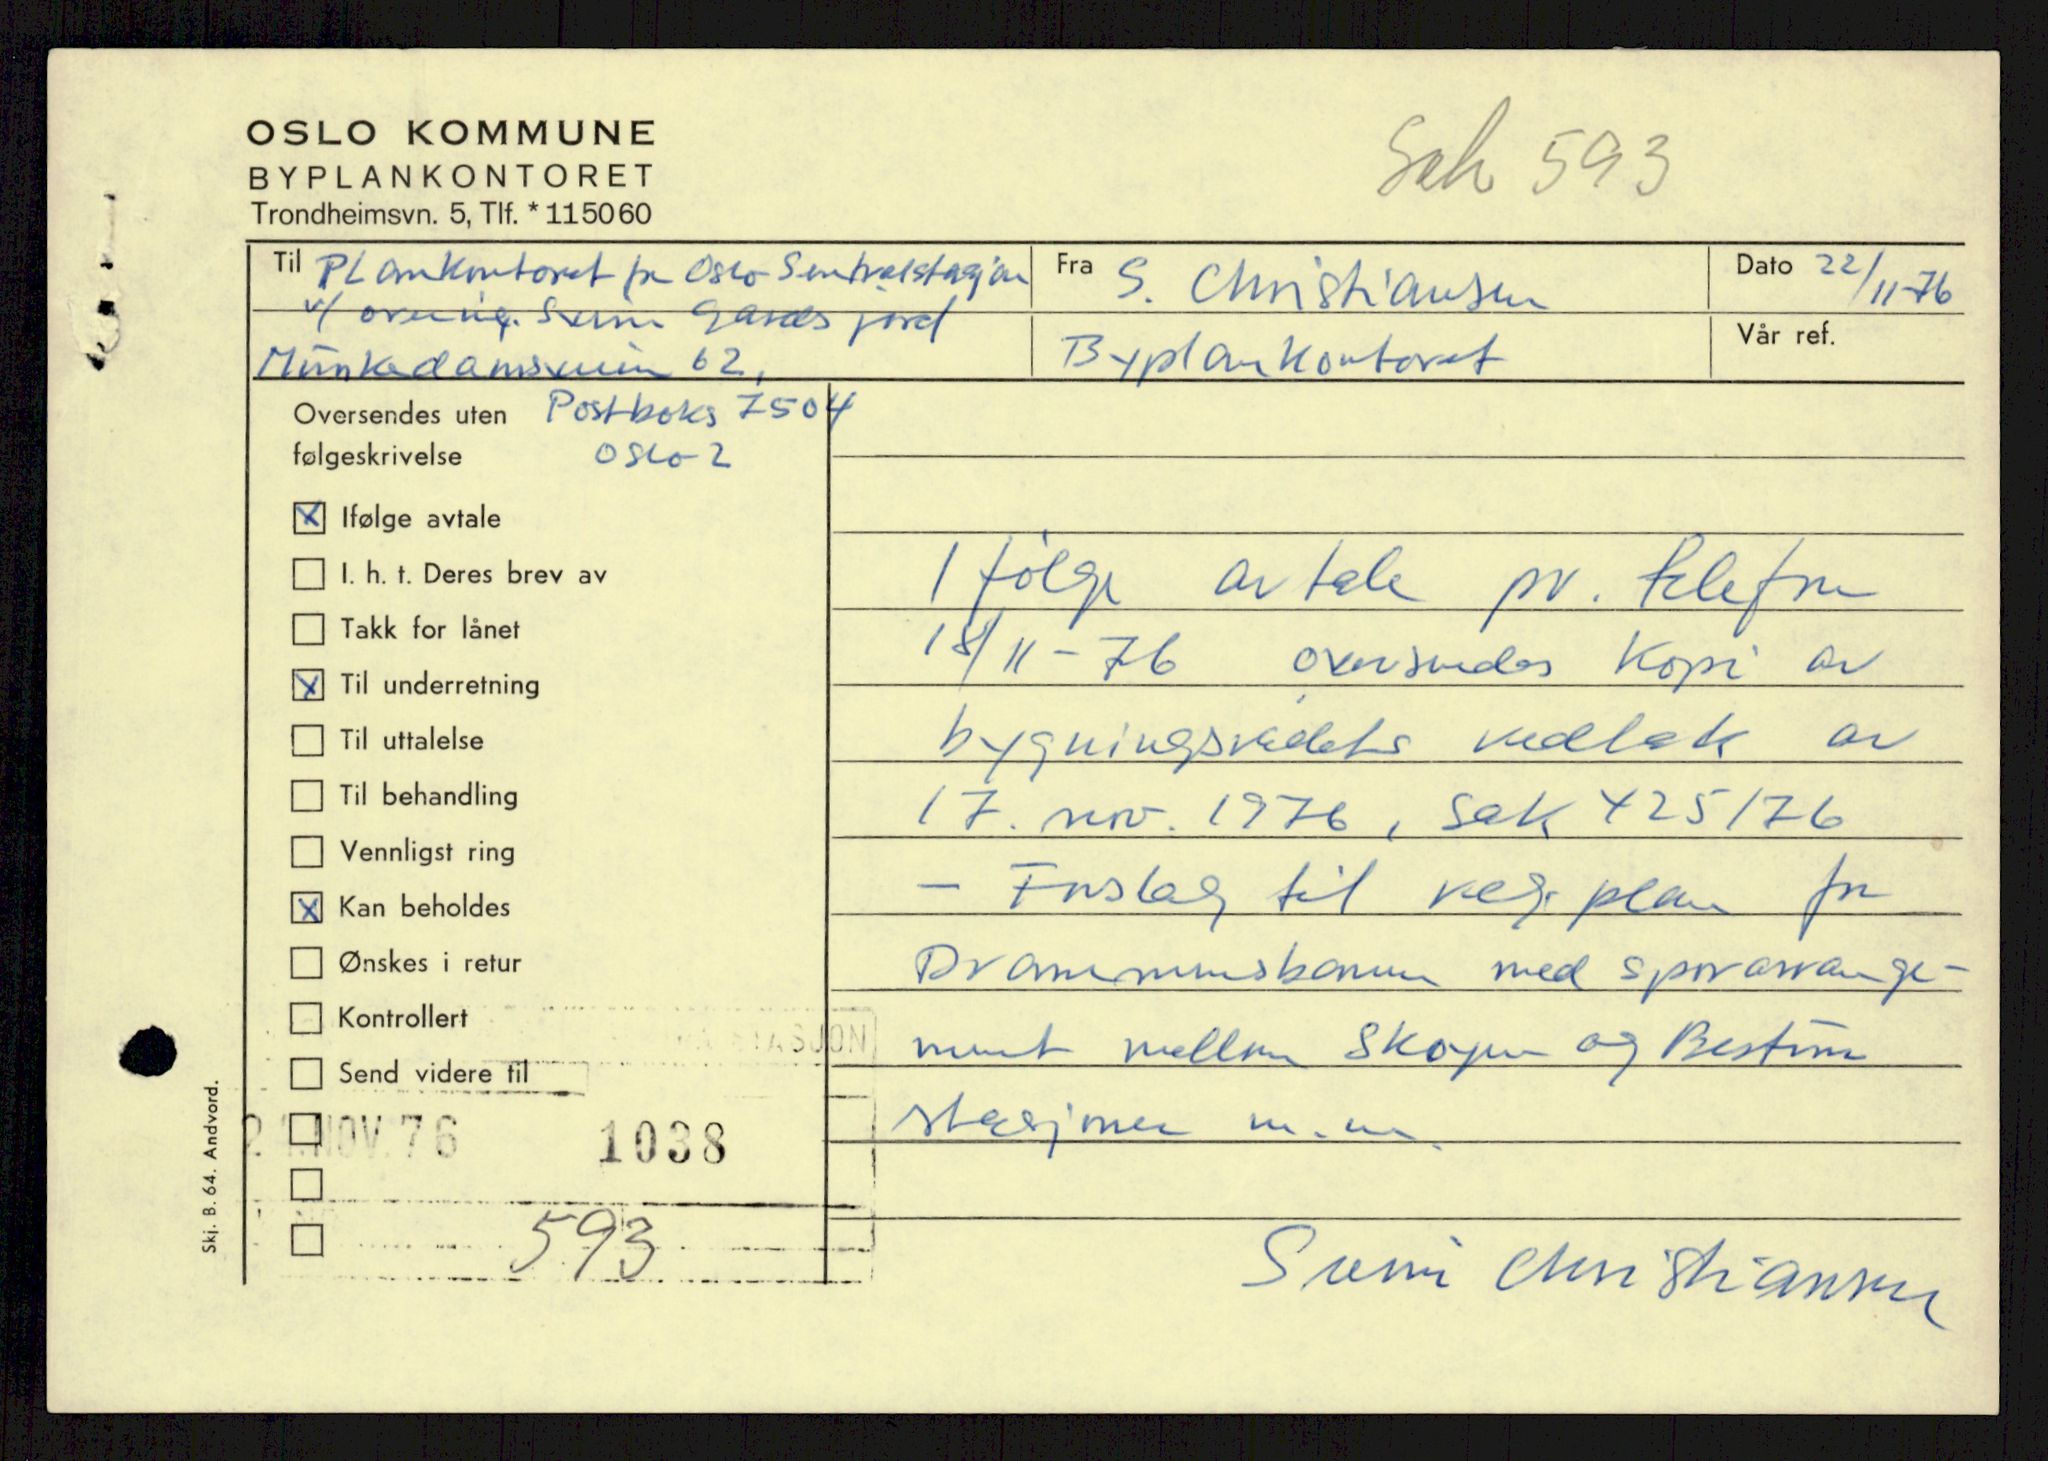 OSLO KOMMUNE
BYPLANKONTORET
Trondheimsvn. 5, Tlf. *115060
Sak 593
Til Plankontoret for Oslo Sentralstasjon
v/ overing. Svein Gardsjord
Munkedamsveien 62,
Postboks 7504
Oslo 2
Fra S. Christiansen
Byplankontoret
Dato 22/11-76
Vår ref.
Oversendes uten
følgeskrivelse
x Ifølge avtale
I. h. t. Deres brev av
Takk for lånet
x Til underretning
Til uttalelse
Til behandling
Vennligst ring
x Kan beholdes
Ønskes i retur
Kontrollert
Send videre til
Ifølge avtale pr. telefon
18/11-76 oversendes kopi av
bygningsrådets vedtak av
17. nov. 1976, sak 425/76
- Forslag til reg. plan for
Drammensbanen med sporarrange-
ment mellem Skøyen og Bestum
stasjoner m.m.
Svein Christiansen
STASJON
NOV. 76
1038
593
Skj. B. 64. Andvord.